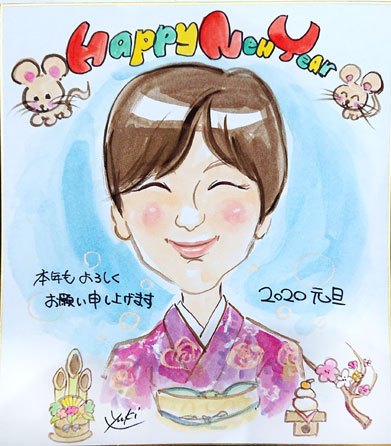 Happy New Year
本年もよろしく
お願い申し上げます
2020 元旦
Yuki